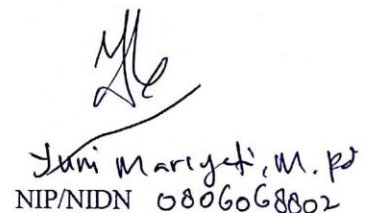 Yuni Mariyati, M.Pd
NIP/NIDN 0806068802